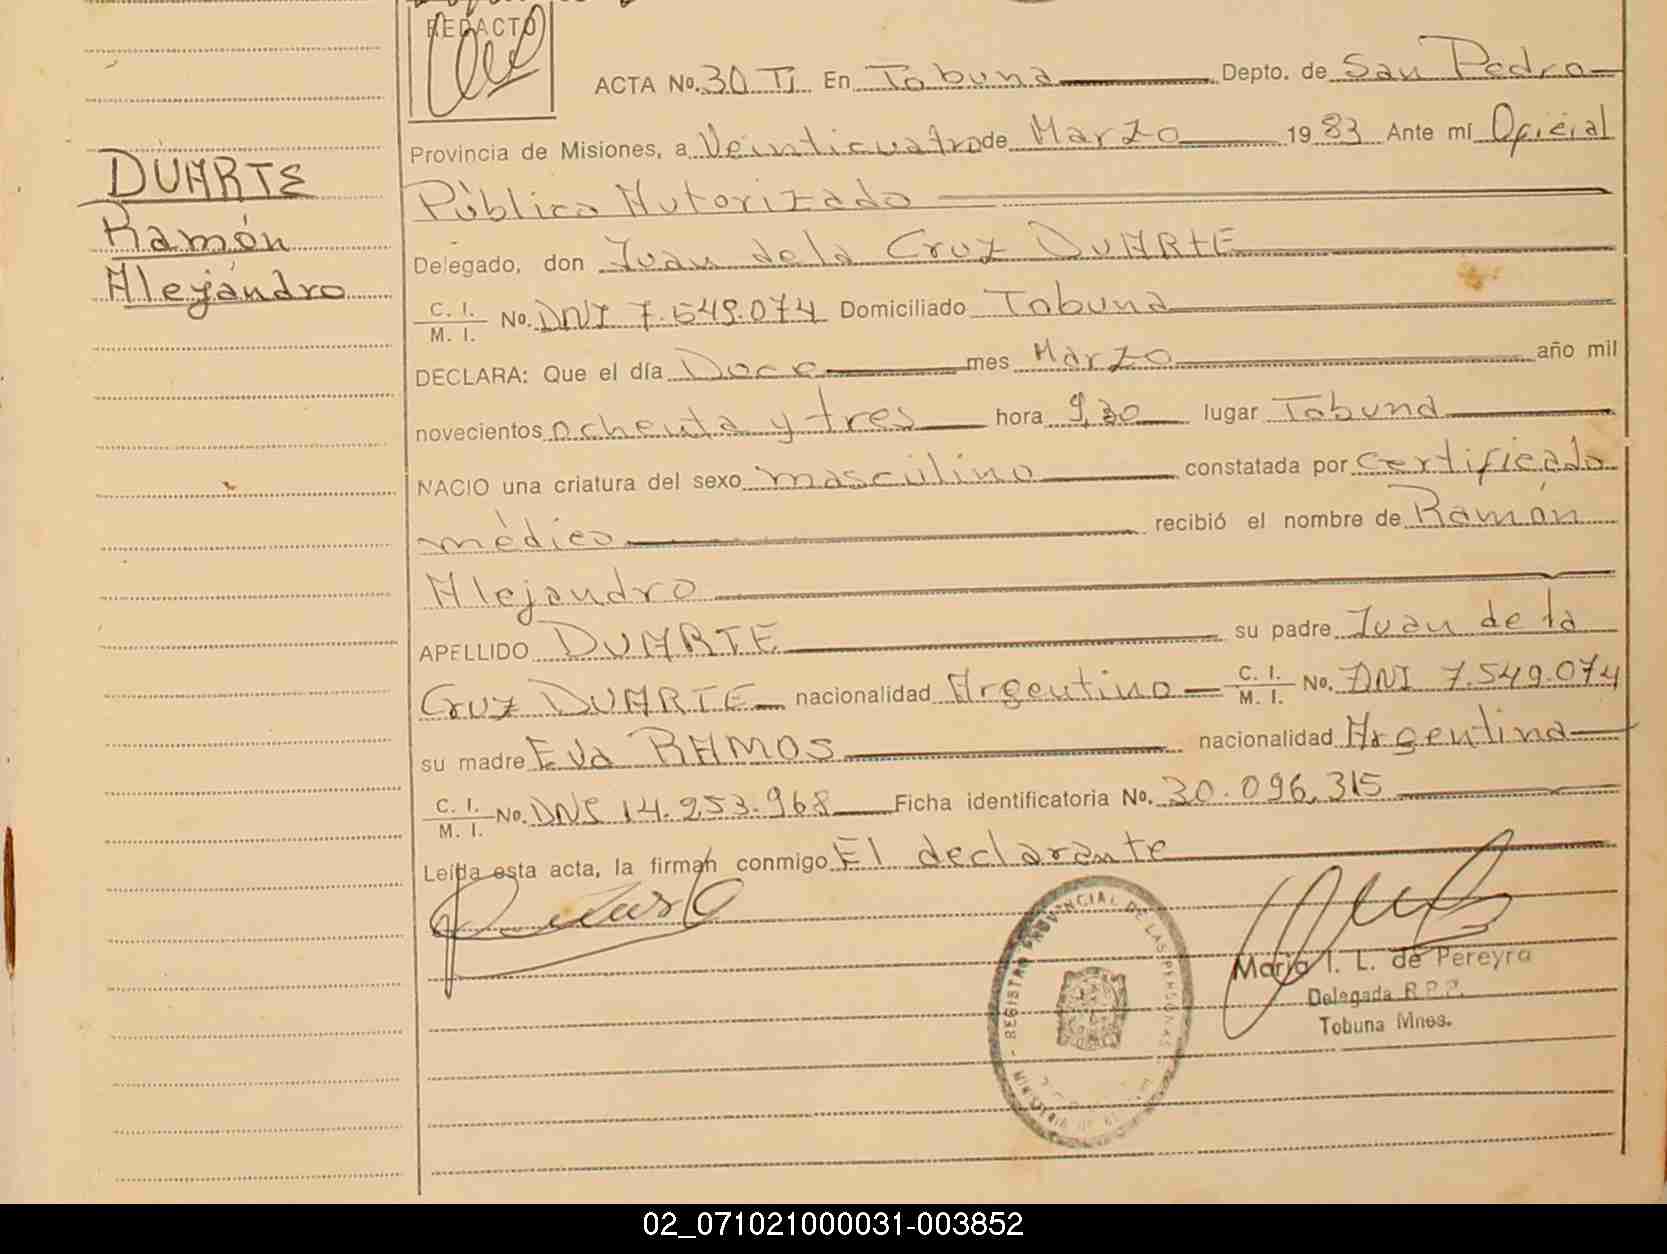 REDACTO
ACTA No. 30 TI En Tobuna Depto. de San Pedro
Provincia de Misiones, a Veinticuatro de Marzo 1983 Ante mí Oficial
Público Autorizado
DUARTE
Ramón
Alejandro
Delegado, don Juan de la Cruz DUARTE
C. I.
M. I. No. DNI 7.549.074 Domiciliado Tobuna
DECLARA: Que el día Doce mes Marzo año mil
novecientos ochenta y tres hora 9,30 lugar Tobuna
NACIO una criatura del sexo masculino constatada por certificado
médico recibió el nombre de Ramón
Alejandro
APELLIDO DUARTE su padre Juan de la
Cruz DUARTE nacionalidad Argentino C. I. M. I. No. DNI 7.549.074
su madre Eva RAMOS nacionalidad Argentina
C. I.
M. I. No. DNI 14.253.968 Ficha identificatoria No. 30.096.315
Leída esta acta, la firman conmigo El declarante
REGISTRO PROVINCIAL DE LAS PERSONAS
María I. L. de Pereyra
Delegada R.P.P.
Tobuna Mnes.
02_071021000031-003852